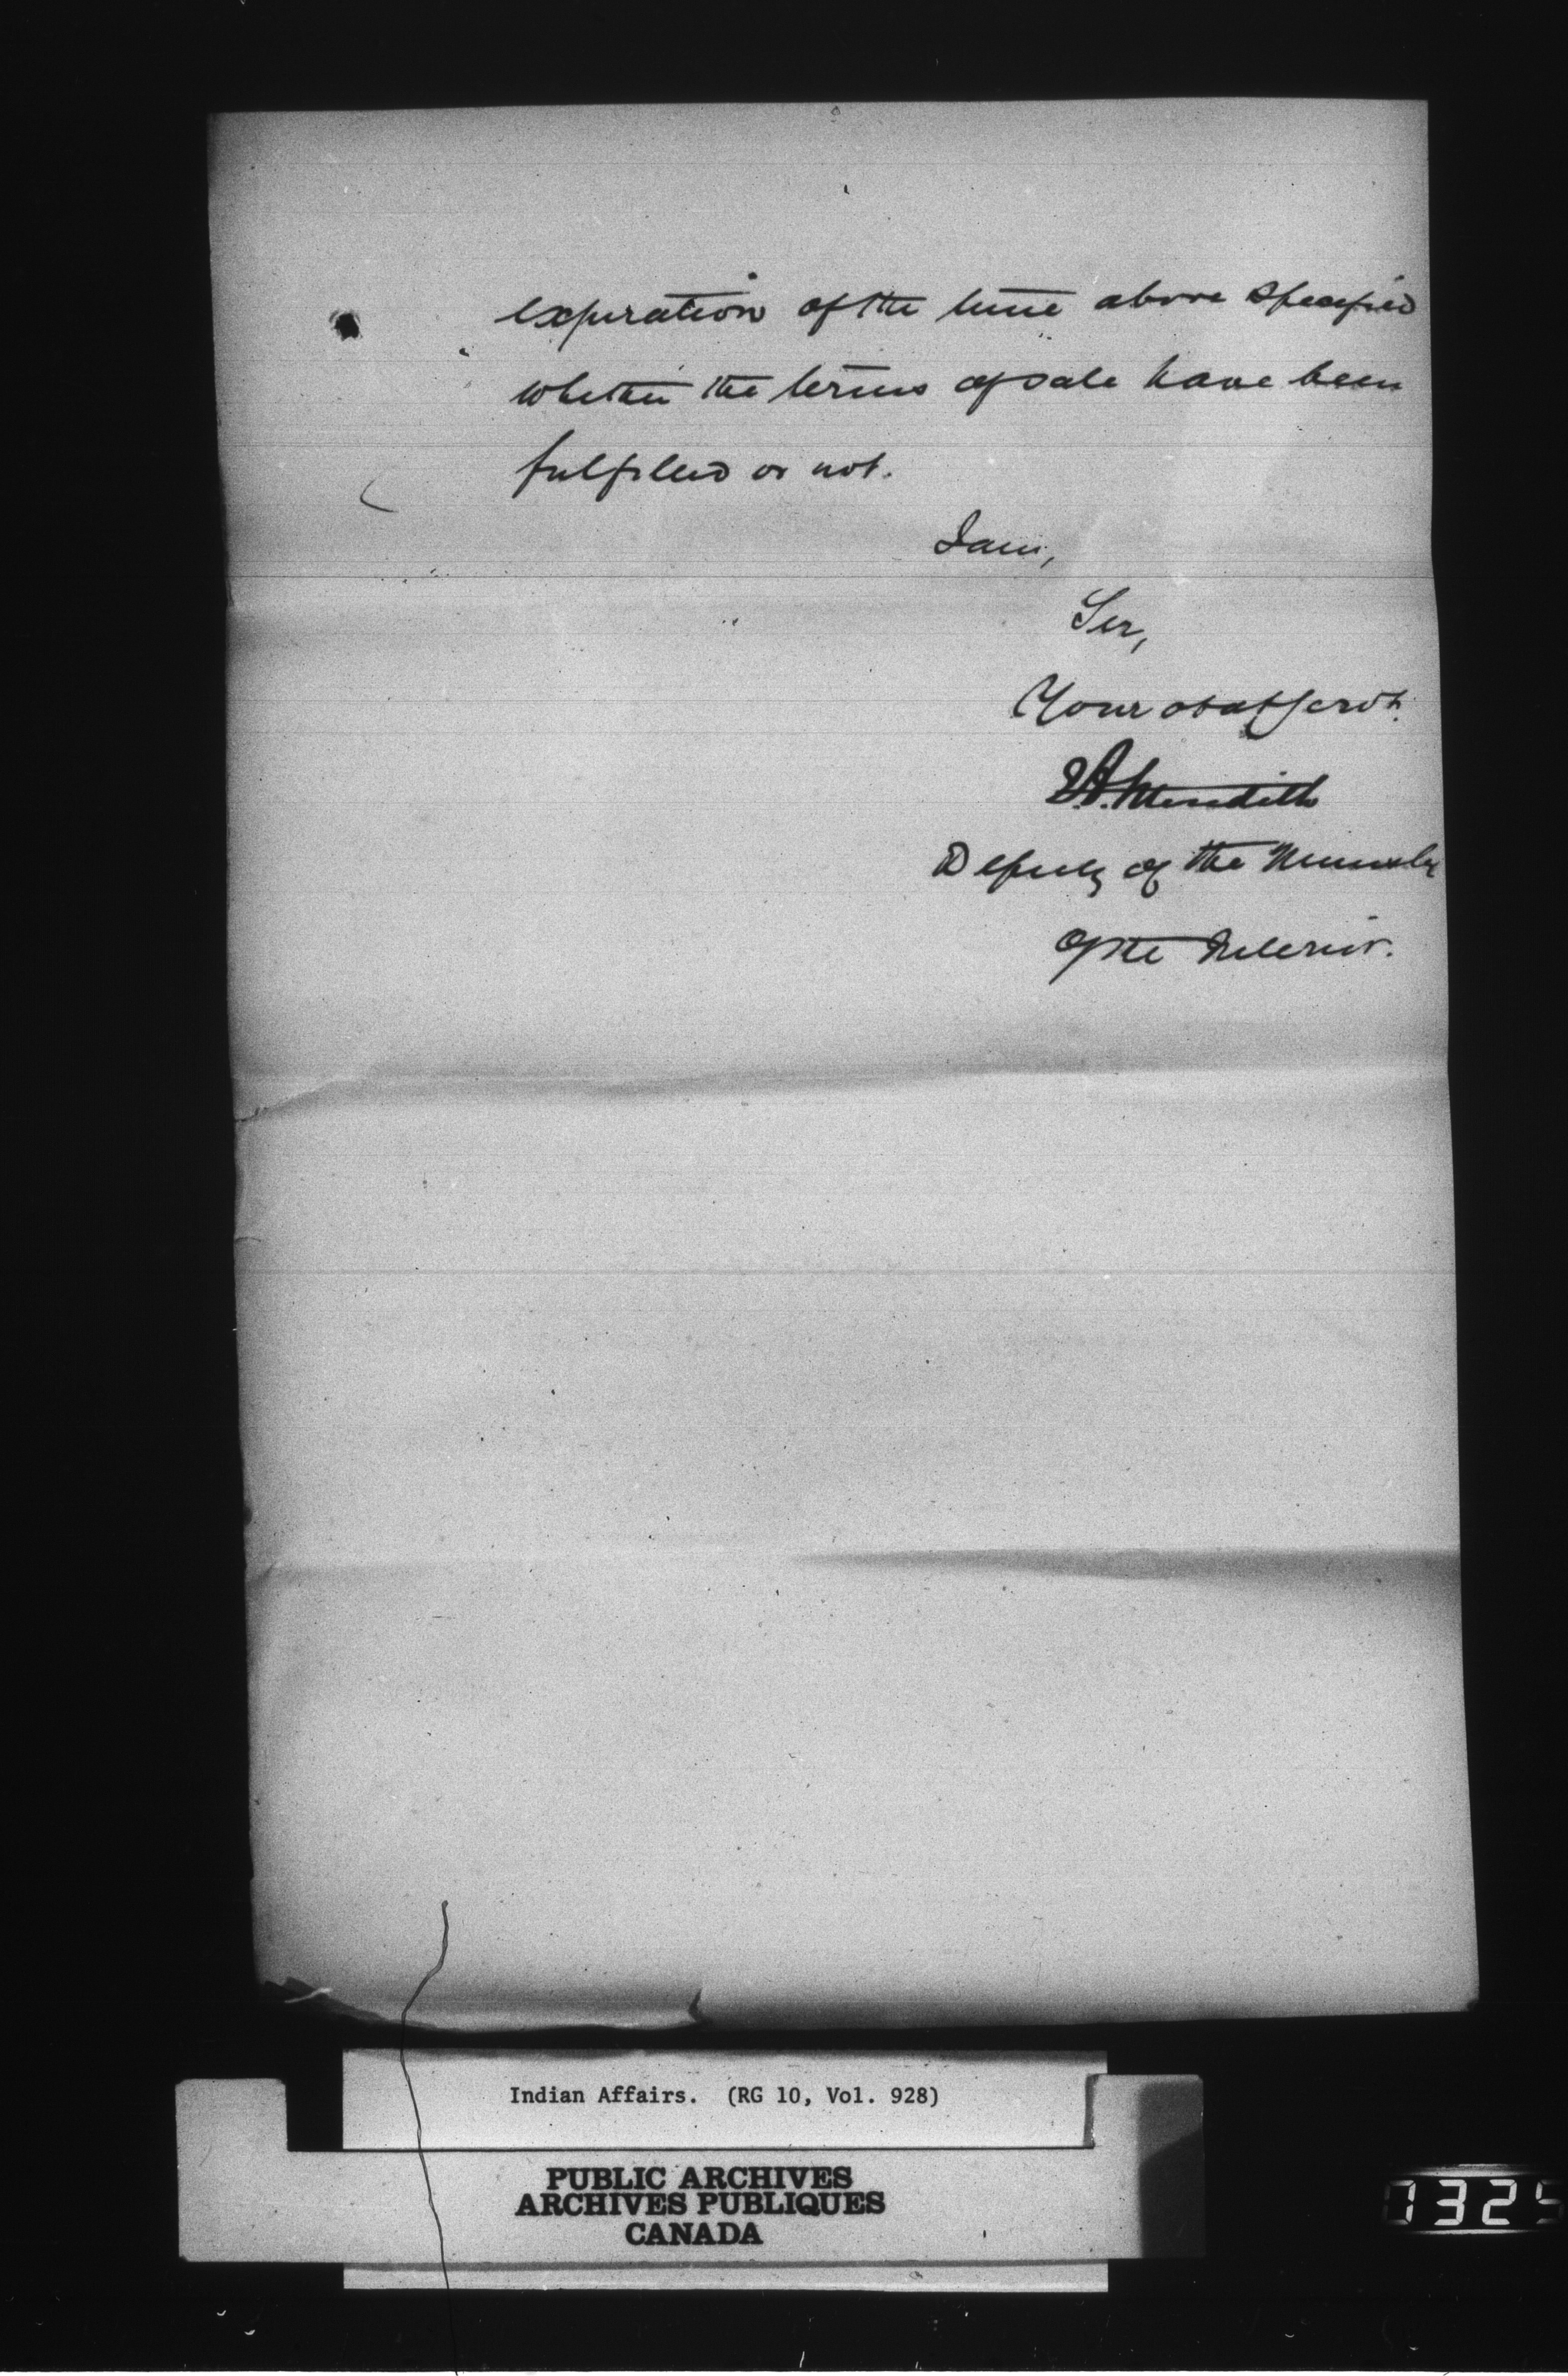 expiration of the time above specified
whether the terms of sale have been
fulfilled or not.
I am,
Sir,
Your obdt Servt.
E A Meredith
Deputy of the Minister
of the Interior.
Indian Affairs. (RG 10, Vol. 928)
PUBLIC ARCHIVES
ARCHIVES PUBLIQUES
CANADA
1325